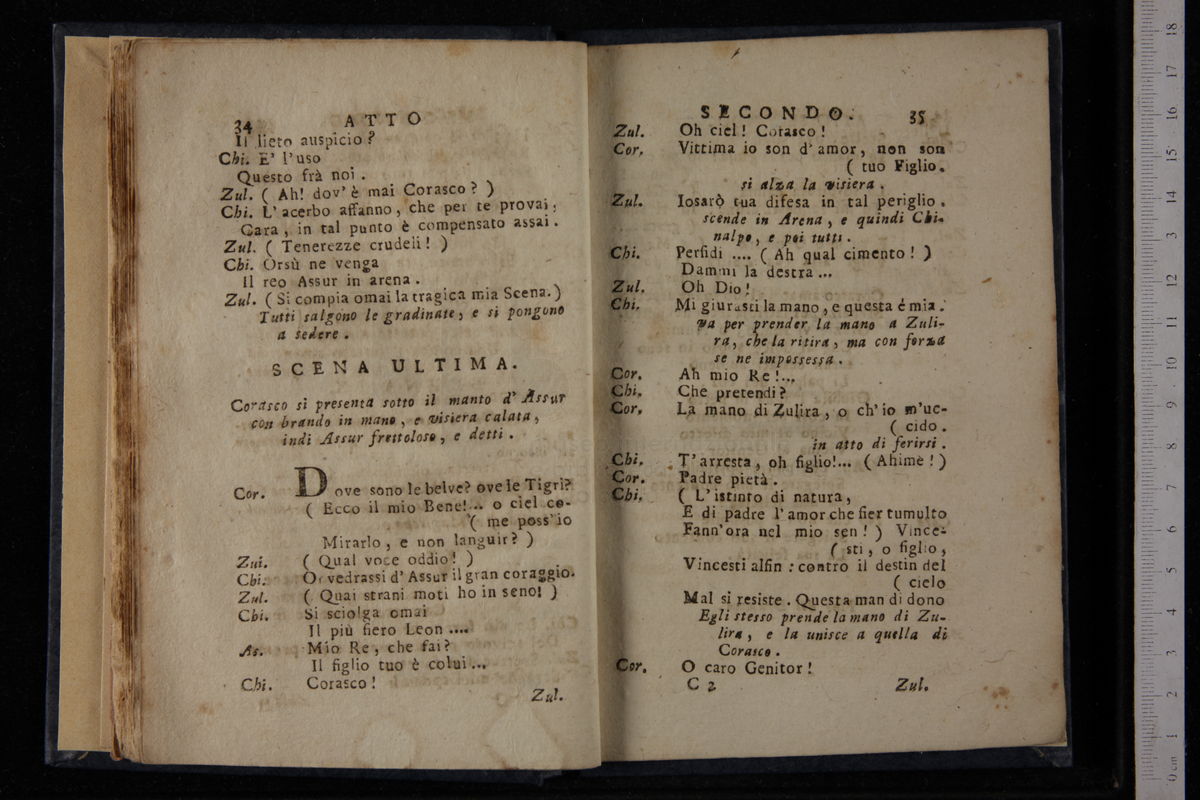 34 ATTO
Il lieto auspicio?
Chi. E' l'uso
Questo frà noi.
Zul. ( Ah! dov'è mai Corasco? )
Chi. L'acerbo affanno, che per te provai,
Cara, in tal punto è compensato assai.
Zul. ( Tenerezze crudeli! )
Chi. Orsù ne venga
Il reo Assur in arena.
Zul. ( Si compia omai la tragica mia Scena. )
Tutti salgono le gradinate, e si pongono
a sedere.
SCENA ULTIMA.
Corasco si presenta sotto il manto d'Assur
con brando in mano, e visiera calata,
indi Assur frettoloso, e detti.
Cor. Dove sono le belve? ove le Tigri?
( Ecco il mio Bene!... o ciel co-
( me poss'io
Mirarlo, e non languir? )
Zul. ( Qual voce oddio! )
Chi. Or vedrassi d'Assur il gran coraggio.
Zul. ( Quai strani moti ho in seno! )
Chi. Si sciolga omai
Il più fiero Leon ....
As. Mio Re, che fai?
Il figlio tuo è colui...
Chi. Corasco!
Zul.
SECONDO. 35
Zul. Oh ciel! Corasco!
Cor. Vittima io son d'amor, non son
( tuo Figlio.
si alza la visiera.
Zul. Iosarò tua difesa in tal periglio.
scende in Arena, e quindi Chi-
nalpo, e poi tutti.
Chi. Perfidi .... ( Ah qual cimento! )
Dammi la destra...
Zul. Oh Dio!
Chi. Mi giurasti la mano, e questa é mia.
va per prender la mano a Zuli-
ra, che la ritira, ma con forza
se ne impossessa.
Cor. Ah mio Re!...
Chi. Che pretendi?
Cor. La mano di Zulira, o ch'io m'uc-
( cido.
in atto di ferirsi.
Chi. T'arresta, oh figlio!... ( Ahimè! )
Cor. Padre pietà.
Chi. ( L'istinto di natura,
E di padre l'amor che fier tumulto
Fann'ora nel mio sen! ) Vince-
( sti, o figlio,
Vincesti alfin: contro il destin del
( cielo
Mal si resiste. Questa man di dono
Egli stesso prende la mano di Zu-
lira, e la unisce a quella di
Corasco.
Cor. O caro Genitor!
C 2 Zul.
0 cm 1 2 3 4 5 6 7 8 9 10 11 12 13 14 15 16 17 18